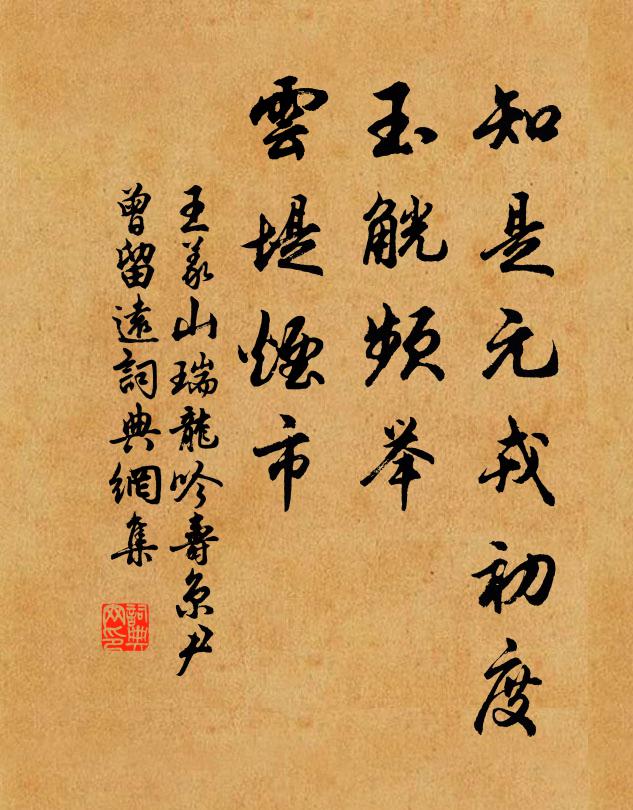 知是元戎初度
玉觥頻举
雲堤煙市
王義山瑞龍吟壽京尹
曾留遠詞典網集
詞典网印